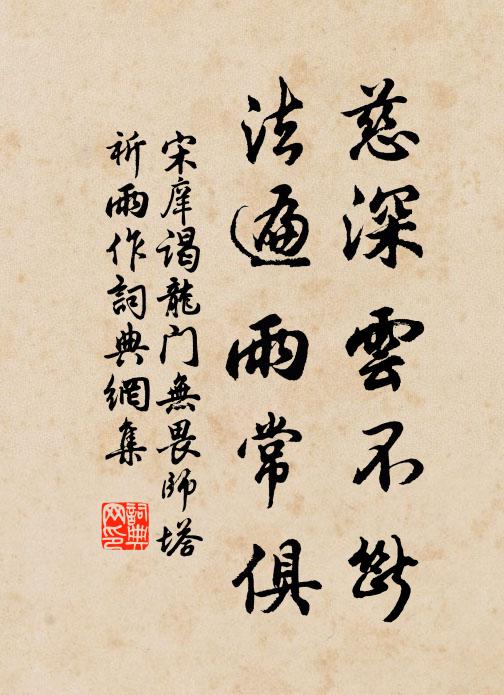 慈深雲不斷
法遍雨常俱
宋庠谒龍门無畏師塔
祈雨作詞典網集
詞典
网印